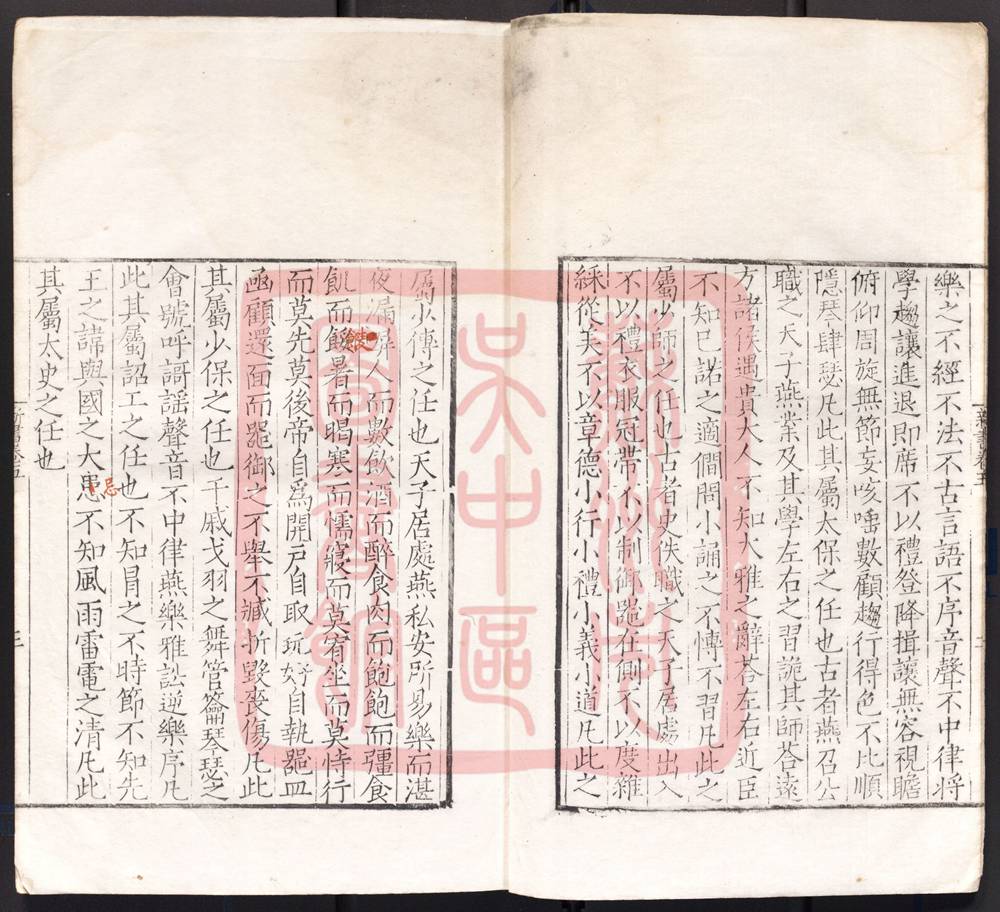 樂之不經不法不古言語不序音聲不中律將
學趨讓進退即席不以禮登降揖讓無容視瞻
俯仰周旋無節妄咳唾數顧趨行得色不比順
隱琴肆瑟凡此其屬太保之任也古者燕召公
職之天子燕業及其學左右之習詭其師荅遠
方諸侯遇貴大人不知大雅之辭荅左右近臣
不知已諾之適僩問小誦之不愽不習凡此之
屬少師之任也古者史佚職之天子居處出入
不以禮衣服冠帶不以制御器在側不以度雜
綵從美不以章德小行小禮小義小道凡此之
屬少傅之任也天子居處燕私安所易樂而湛
夜漏人而數飲酒而醉食肉而飽飽而彊食
飢而餒暑而暍寒而懦寢而莫宥坐而莫恃行
而莫先莫後帝自爲開戸自取玩好自執器皿
亟顧還面而器御之不舉不臧折毀喪傷凡此
其屬少保之任也干戚戈羽之舞管籥琴瑟之
會號呼謌謡聲音不中律燕樂雅訟逆樂序凡
此其屬詔工之任也不知冐之不時節不知先
王之諱與國之大患不知風雨雷電之清凡此
忌
其屬太史之任也
新書卷五
新書卷五
三
蘇州市
吳中區
圖書館